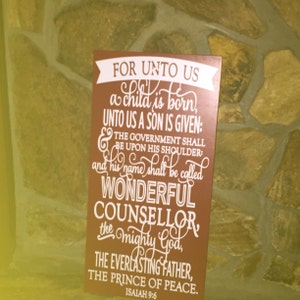 FOR UNTO US
a child is born,
UNTO US A SON IS GIVEN:
& THE GOVERNMENT SHALL
BE UPON HIS SHOULDER:
and his name shall be called
WONDERFUL
COUNSELLOR,
the mighty God,
THE EVERLASTING FATHER,
THE PRINCE OF PEACE.
ISAIAH 9:6